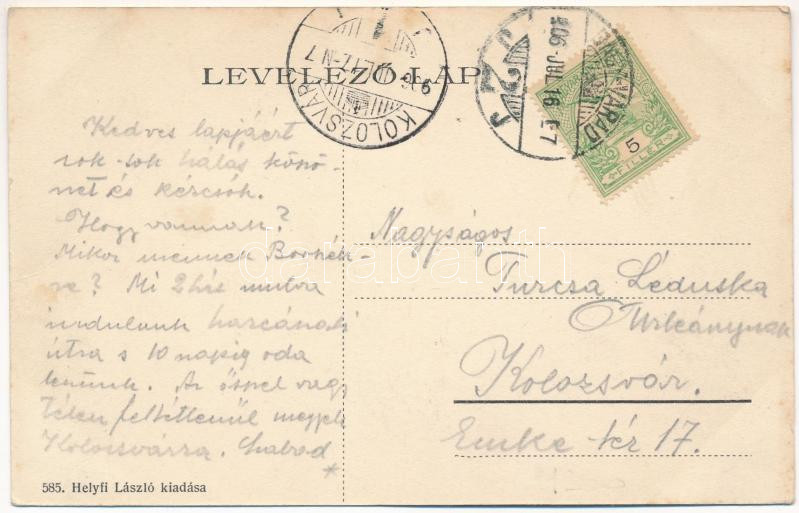 LEVELEZŐ-LAP
KOLOZSVÁR
906 JUL.17.-N 7
906 JUL 16
VÁRAD
5
FILLÉR
Kedves lapjáért
sok-sok hálás köszö-
net és kézcsók.
Hogy vannak?
Mikor mennek Borszék-
re? Mi 2 hét mulva
indulunk
útra s 10 napig oda
leszünk. Az ősszel vagy
télen feltétlenül megyek
Kolozsvárra.
Nagyságos
Turcsa Léduska
Urleánynak
Kolozsvár.
Emke tér 17.
585. Helyfi László kiadása
darabanth